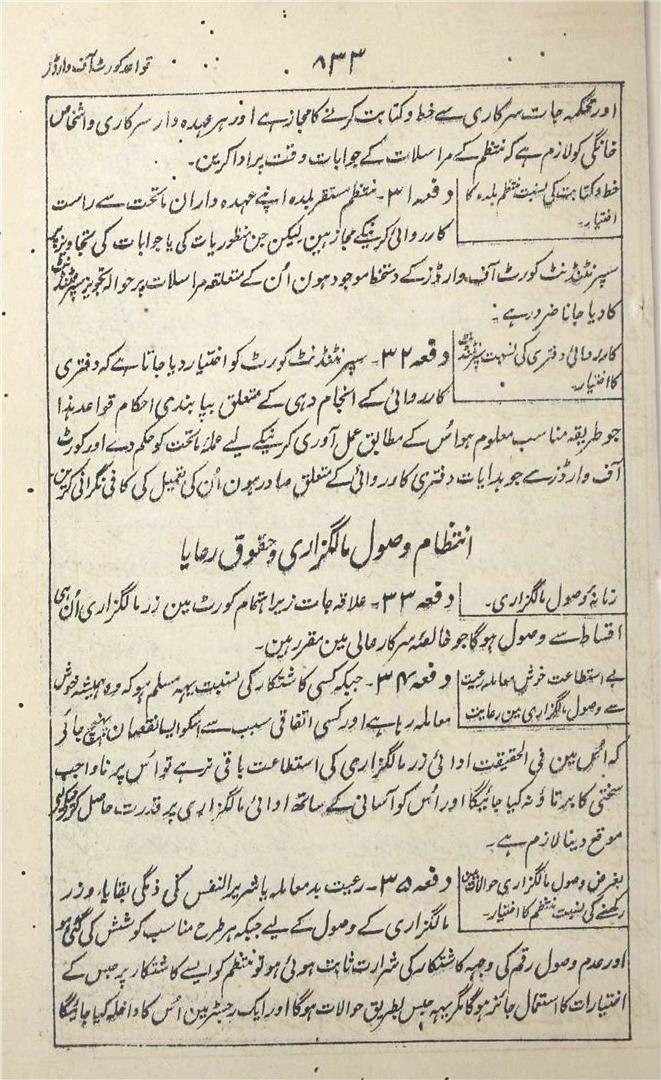 قواعد کورٹ آف وارڈز
۸۳۳
اور محکمہ جات سرکاری سے خط و کتابت کرنے کا مجاز ہے اور ہر عہدہ دار سرکاری و اشخاص
خانگی کو لازم ہے کہ منتظم کے مراسلات کے جوابات وقت پر ادا کرین۔
خط و کتابت کی نسبت منتظم بلدہ کا
اختیار۔
دفعہ ۳۱۔ منتظم مستقر بلدہ اپنے عہدہ داران ماتحت سے راست
کارروائی کرنیکے مجاز ہین لیکن جن منظوریات کی یا جوابات کی تجاویز پر
سپرنٹنڈنٹ کورٹ آف وارڈز کے دستخط موجود ہون اُن کے متعلقہ مراسلات پر حوالہ تجویز سپرنٹنڈنٹ
کا دیا جانا ضرور ہے۔
کارروائی دفتری کی نسبت سپرنٹنڈنٹ
کا اختیار۔
دفعہ ۳۲۔ سپرنٹنڈنٹ کورٹ کو اختیار دیا جاتا ہے کہ دفتری
کارروائی کے انجام دہی کے متعلق بپابندی احکام قواعد ہذا
جو طریقہ مناسب معلوم ہو اُس کے مطابق عمل آوری کرنیکے لیے عملۂ ماتحت کو حکم دے اور کورٹ
آف وارڈز سے جو ہدایات دفتری کارروائی کے متعلق صادر ہون اُن کی تعمیل کی کافی نگرانی کرین
انتظام وصول مالگزاری و حقوق رعایا
زمانۂ وصول مالگزاری۔
دفعہ ۳۳۔ علاقہ جات زیر اہتمام کورٹ مین زر مالگزاری اُن ہی
اقساط سے وصول ہوگا جو خالصۂ سرکار عالی مین مقرر ہین۔
بے استطاعت خوش معاملہ رعیت
سے وصول مالگزاری مین رعایت
دفعہ ۳۴۔ جبکہ کسی کاشتکار کی نسبت یہہ مسلم ہو کہ وہ ہمیشہ خوش
معاملہ رہا ہے اور کسی اتفاقی سبب سے اسکو ایسا نقصان پہنچ جائے
کہ اُس مین فی الحقیقت ادائی زر مالگزاری کی استطاعت باقی نرہے تو اُس پر ناواجب
سختی کا برتاؤ نہ کیا جائیگا اور اُس کو آسانی کے ساتھ ادائی مالگزاری پر قدرت حاصل کرنیکے لیے
موقع دینا لازم ہے۔
بغرض وصول مالگزاری حوالات مین
رکھنے کی نسبت منتظم کا اختیار۔
دفعہ ۳۵۔ رعیت بد معاملہ یا شریر النفس کی ذمگی بقایا، وزر
مالگزاری کے وصول کے لیے جبکہ ہر طرح مناسب کوشش کی گئی ہو
اور عدم وصول رقم کی وجہہ کاشتکار کی شرارت ثابت ہوئی ہو تو منتظم کو ایسے کاشتکار پر حبس کے
اختیارات کا استعمال جائز ہوگا مگر یہہ حبس بطریق حوالات ہوگا اور ایک رجسٹر مین اُس کا داخلہ کیا جائیگا